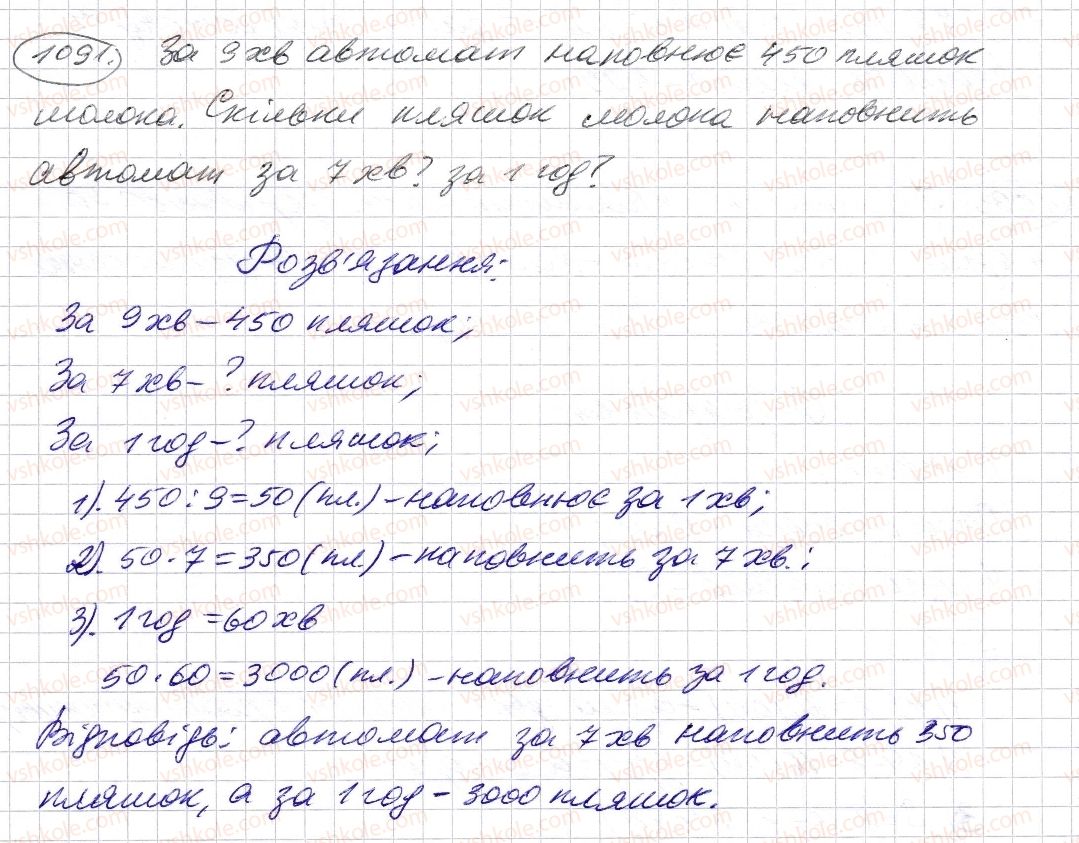 1091. За 9 хв автомат наповнює 450 пляшок
молока. Скільки пляшок молока наповнить
автомат за 7 хв? за 1 год?
Розв'язання:
За 9 хв – 450 пляшок;
За 7 хв – ? пляшок;
За 1 год – ? пляшок;
1). 450 : 9 = 50 (пл.) – наповнює за 1 хв;
2). 50 · 7 = 350 (пл.) – наповнить за 7 хв.;
3). 1 год = 60 хв
50 · 60 = 3000 (пл.) – наповнить за 1 год.
Відповідь: автомат за 7 хв наповнить 350
пляшок, а за 1 год – 3000 пляшок.
vshkole.com